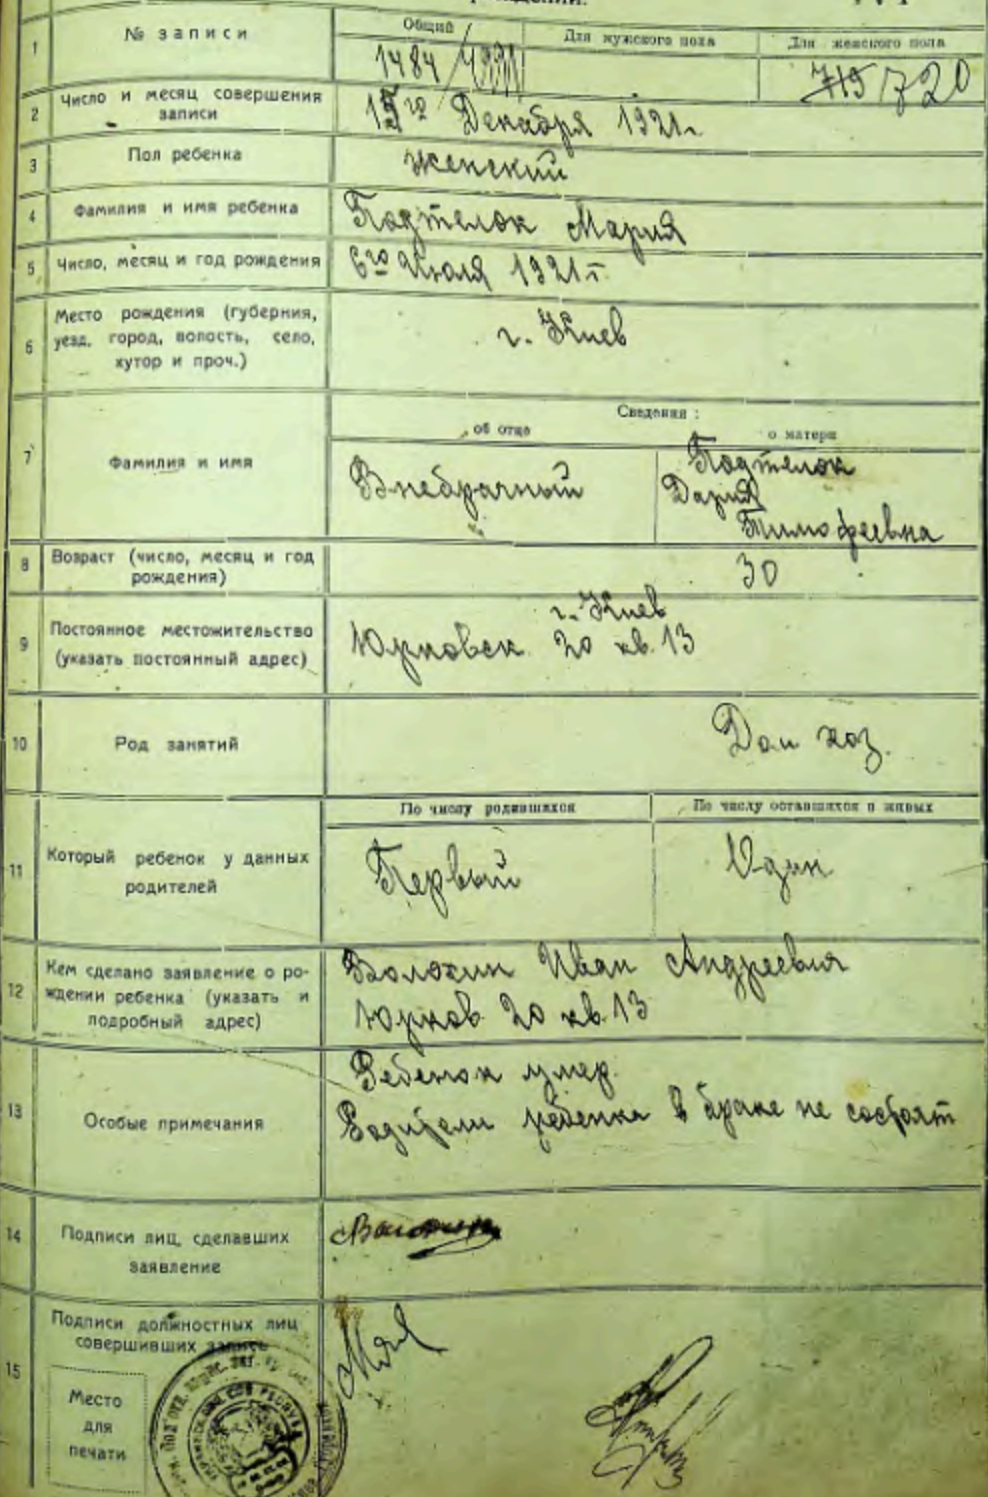 № записи
Общий
Для мужского пола
Для женского пола
1
1484
719 720
2
Число и месяц совершения
записи
15го Декабря 1921г.
3
Пол ребенка
женский
4
Фамилия и имя ребенка
Подтелок Мария
5
Число, месяц и год рождения
6го Июля 1921 г.
6
Место рождения (губерния,
уезд, город, волость, село,
хутор и проч.)
г. Киев
Сведения:
7
Фамилия и имя
об отце
о матери
Внебрачный
Подтелок
Дария
Тимофеевна
8
Возраст (число, месяц и год
рождения)
30
9
Постоянное местожительство
(указать постоянный адрес)
г. Киев
Юрковск. 20 кв. 13
10
Род занятий
Дом хоз.
По числу родившихся
По числу оставшихся в живых
11
Который ребенок у данных
родителей
Первый
Один
12
Кем сделано заявление о ро-
ждении ребенка (указать и
подробный адрес)
Волохин Иван Андреевич
Юрков. 20 кв. 13
13
Особые примечания
Ребенок умер.
Родители ребенка в браке не состоят
14
Подписи лиц, сделавших
заявление
15
Подписи должностных лиц
совершивших запись
Место
для
печати